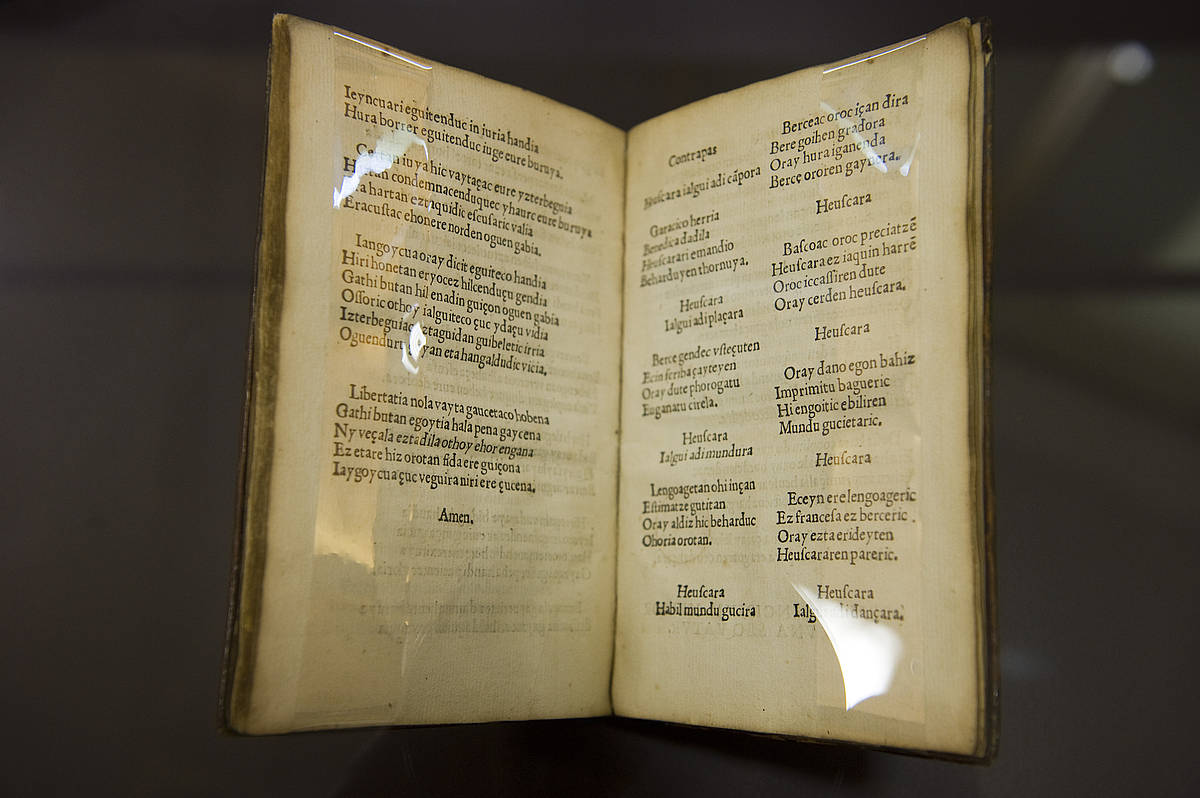 Ieyncuari eguitenduc in iuria handia
Hura borrer eguitenduc iuge eure buruya.
iu ya hic vaytaçac eure yzterbeguia
condemnacenduquec yhaurc eure buruya
hartan ezt aquidic escusaric valia
Eracustac ehonere norden oguen gabia.
Iangoycua oray dicit eguiteco handia
Hiri honetan eryocez hilcenduçu gendia
Gathi butan hil enadin guiçon oguen gabia
Oſſoric othoy ialguiteco çuc ydaçu vidia
Izterbeguiac eztaguidan guibeletic irria
Oguenduru yan eta hangaldudic vicia.
Libertatia nola vayta gaucetaco hobena
Gathi butan egoytia hala pena gaycena
Ny veçala eztadila othoy ehor engana
Ez etare hiz orotan fida ere guiçona
Iaygoycua çuc veguira niri ere çucena.
Amen.
Contrapas
Heuſcara ialgui adi cãpora
Garacico herria
Benedica dadila
Heuſcarari emandio
Beharduyen thornuya.
Heuſcara
Ialgui adi plaçara
Berce gendec vſteçuten
Ecin ſcriba çayteyen
Oray dute phorogatu
Euganatu cirela.
Heuſcara
Ialgui adi mundura
Lengoagetan ohi inçan
Eſtimatze gutitan
Oray aldiz hic beharduc
Ohoria orotan.
Heuſcara
Habil mundu gucira
Berceac oroc içan dira
Bere goihen gradora
Oray hura iganenda
Berce ororen gaynera.
Heuſcara
Baſcoac oroc preciatzẽ
Heuſcara ez iaquin harrẽ
Oroc iccaſſiren dute
Oray cerden heuſcara.
Heuſcara
Oray dano egon bahiz
Imprimitu bagueric
Hi engoitic ebiliren
Mundu gucietaric.
Heuſcara
Eceyn ere lengoageric
Ez franceſa ez berceric
Oray ezta erideyten
Heuſcararen pareric.
Heuſcara
Ialgui adi dançara.